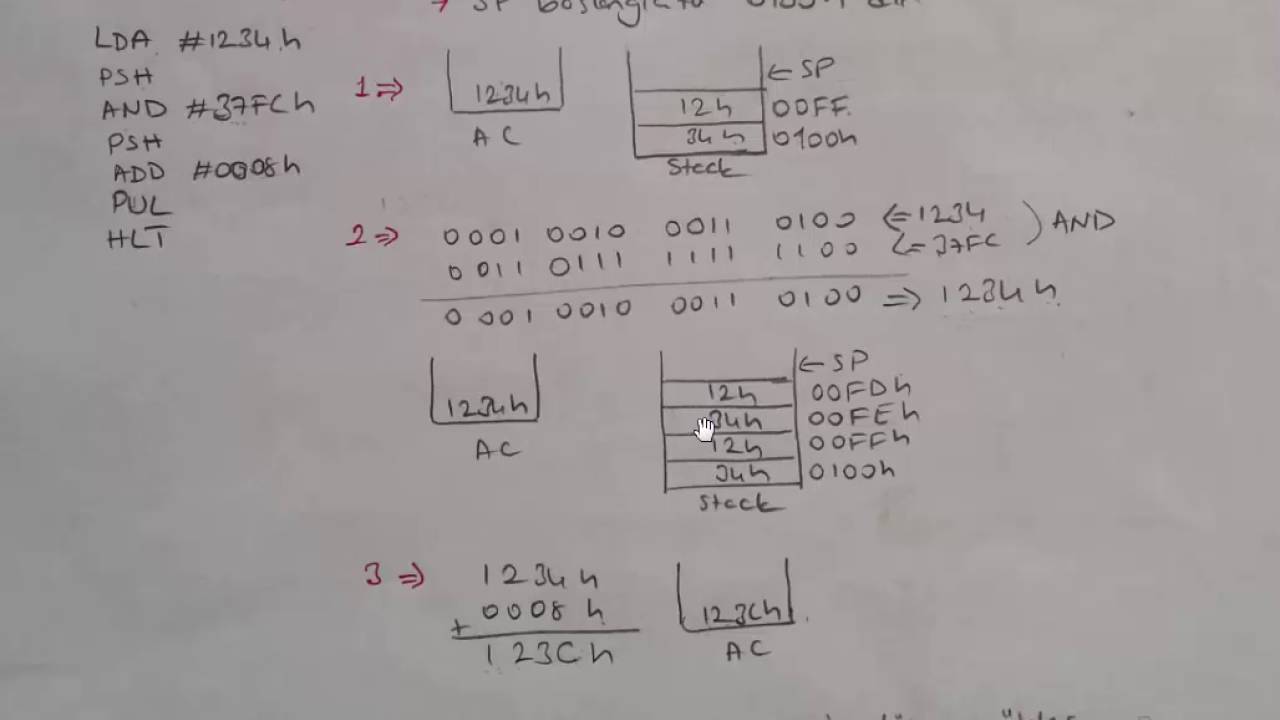 SP başlangıçta 0100h
LDA #1234h
PSH
AND #37FCh
PSH
ADD #0008h
PUL
HLT
1 ⇒
1234h
AC
← SP
12h 00FF
34h 0100h
Stack
2 ⇒
0001 0010 0011 0100 ⇐ 1234
0011 0111 1111 1100 ⇐ 37FC
) AND
0001 0010 0011 0100 ⇒ 1234h
1234h
AC
← SP
12h 00FDh
34h 00FEh
12h 00FFh
34h 0100h
Stack
3 ⇒
1234h
+ 0008h
123Ch
123Ch
AC